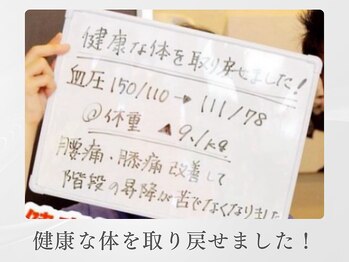 健康な体を取り戻せました！
血圧 150/110 → 111/78
@体重 ▲9.1kg
腰痛・膝痛改善して
階段の昇降が苦でなくなりました
健康な体を取り戻せました！